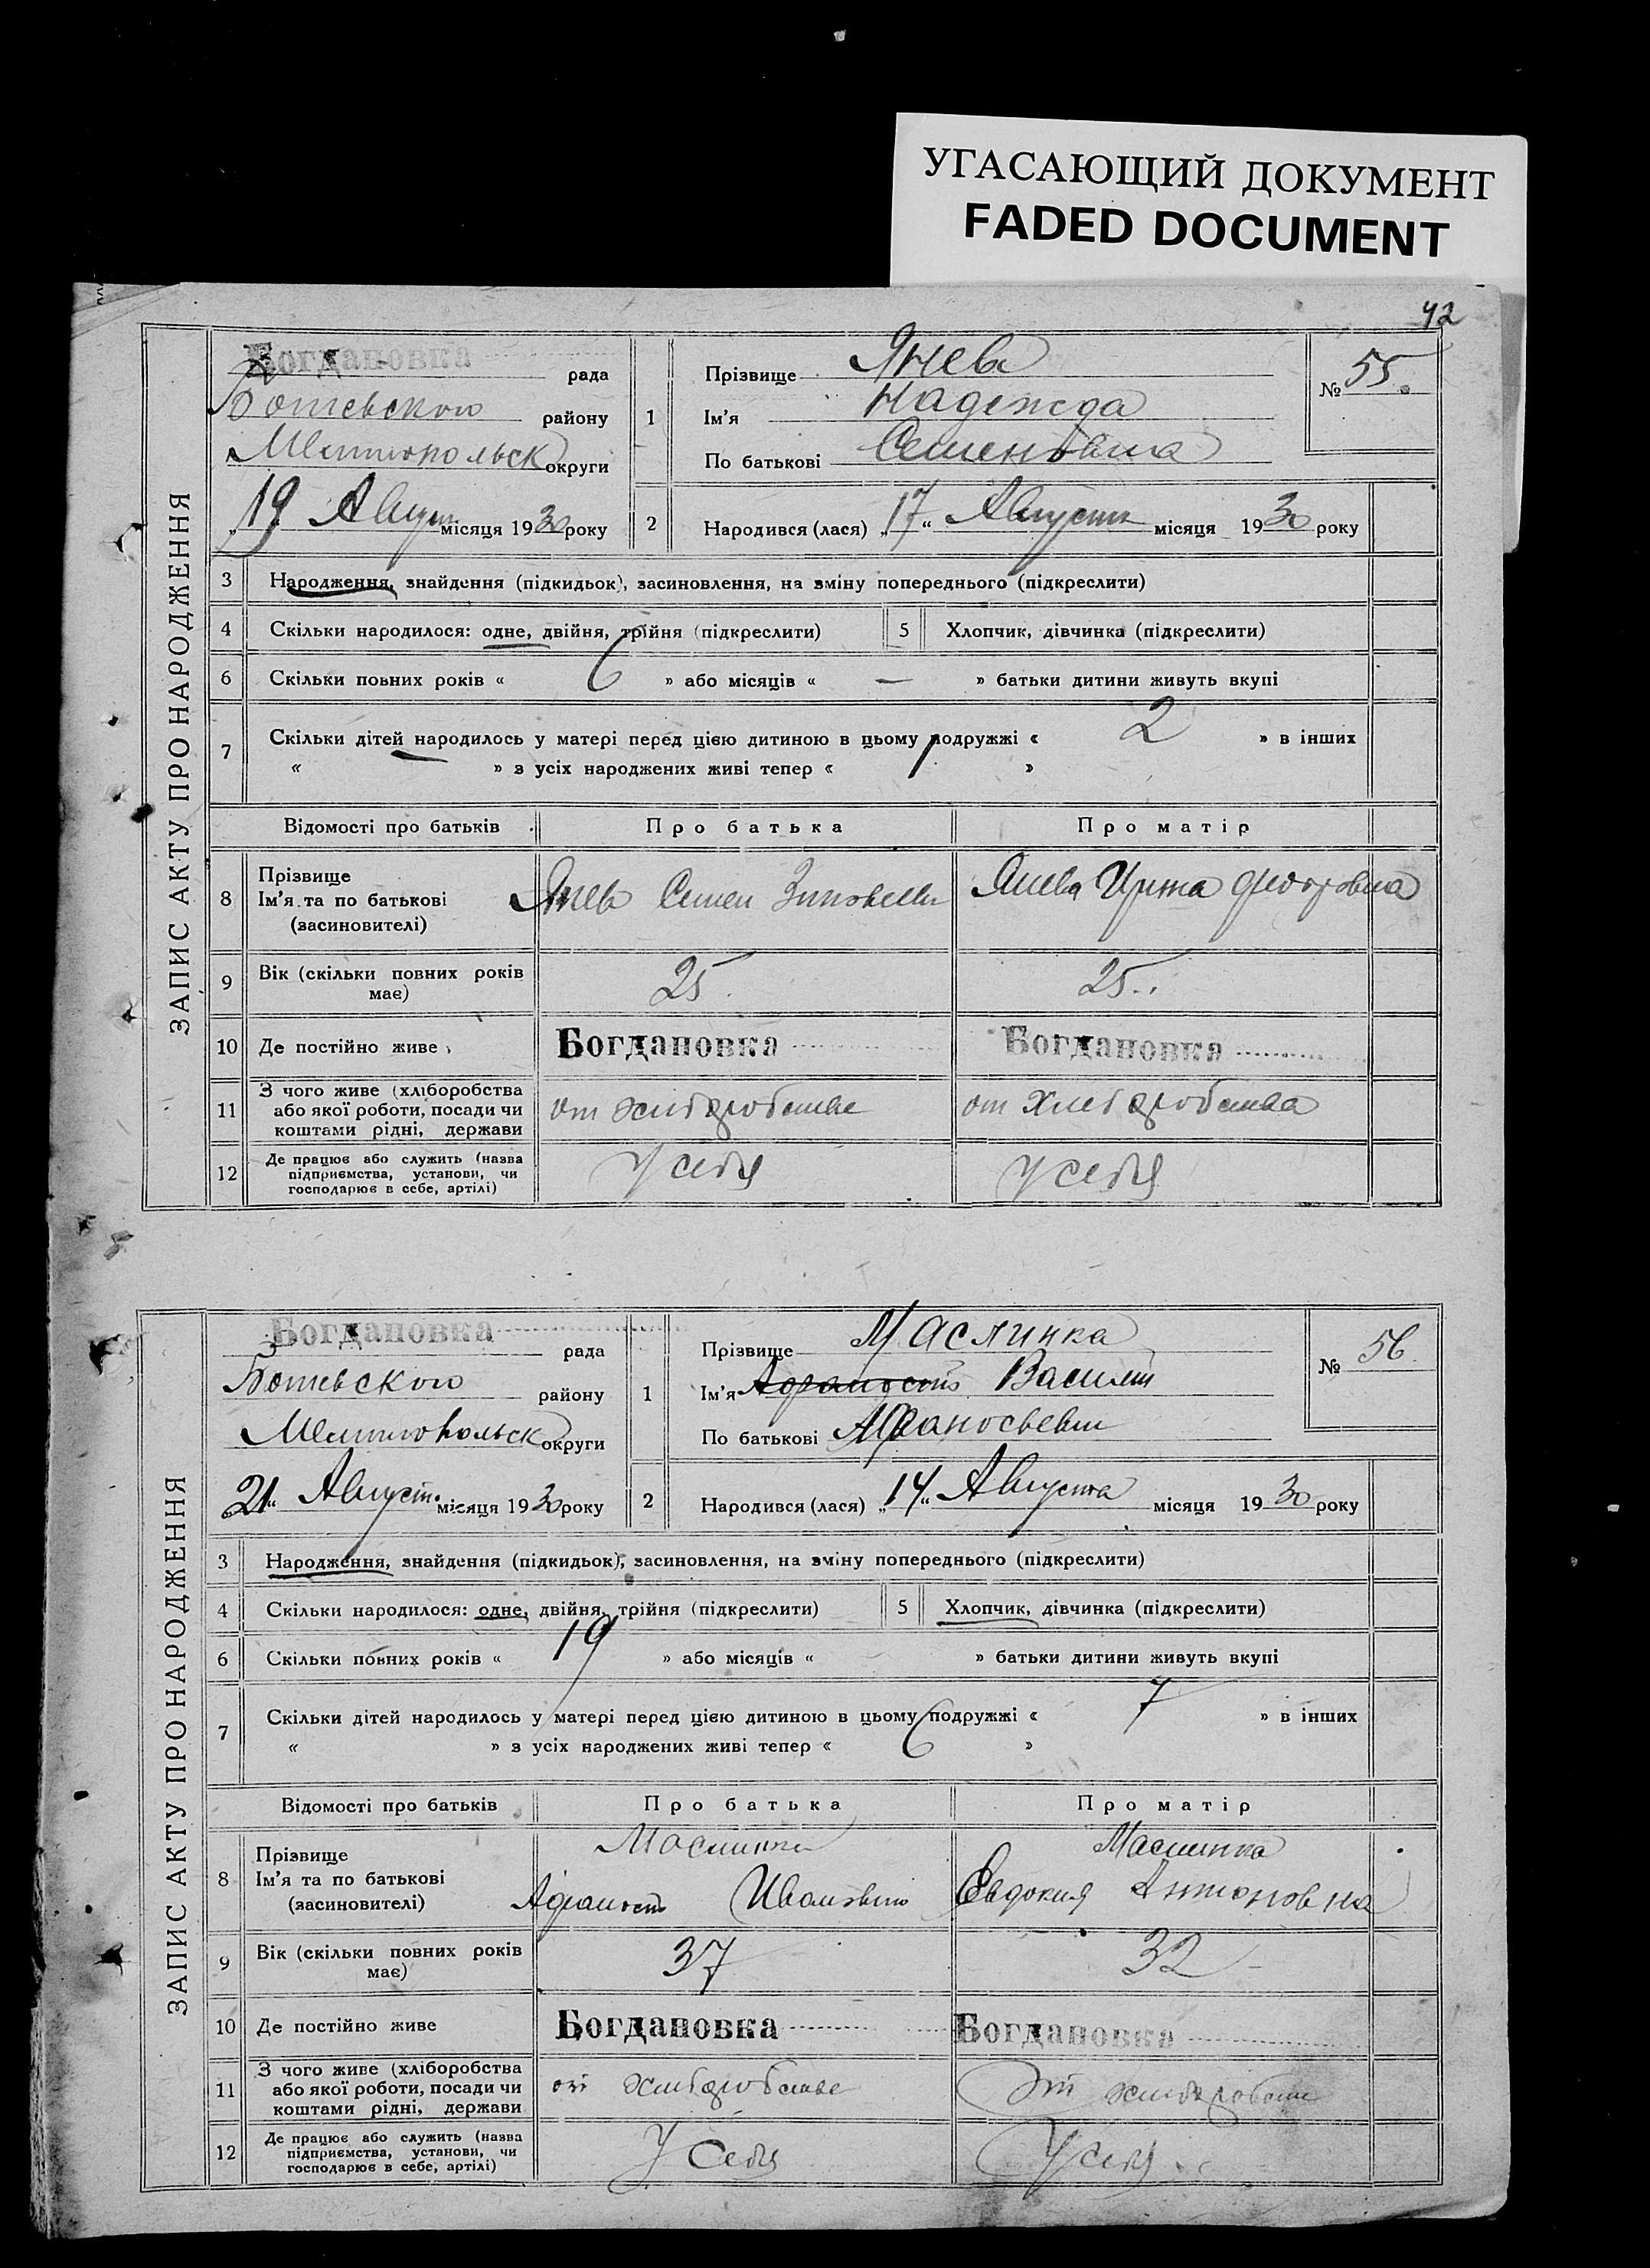 УГАСАЮЩИЙ ДОКУМЕНТ
FADED DOCUMENT
42
ЗАПИС АКТУ ПРО НАРОДЖЕННЯ
Богдановка рада
Ботевского району
Мелитопольск округи
„19 Август місяця 1930 року
1 Прізвище Янева
Ім'я Надежда
По батькові Семеновна
№ 55.
2 Народився (лася) „17“ Августа місяця 1930 року
3 Народження, знайдення (підкидьок), засиновлення, на зміну попереднього (підкреслити)
4 Скільки народилося: одне, двійня, трійня (підкреслити) 5 Хлопчик, дівчинка (підкреслити)
6 Скільки повних років « 6 » або місяців « — » батьки дитини живуть вкупі
7 Скільки дітей народилось у матері перед цією дитиною в цьому подружжі « 2 » в інших
« — » з усіх народжених живі тепер « 1 »
Відомості про батьків Про батька Про матір
8 Прізвище
Ім'я та по батькові
(засиновителі)
Янев Семен Янева Ирина
9 Вік (скільки повних років має) 25. 25..
10 Де постійно живе Богдановка Богдановка
11 З чого живе (хліборобства
або якої роботи, посади чи
коштами рідні, держави
от хлеборобства от хлеборобства
12 Де працює або служить (назва
підприємства, установи, чи
господарює в себе, артілі)
У себя У себя
ЗАПИС АКТУ ПРО НАРОДЖЕННЯ
Богдановка рада
Ботевского району
Мелитопольск округи
„21“ Август. місяця 1930 року
1 Прізвище Маслинка
Ім'я Василий
По батькові
№ 56
2 Народився (лася) „14“ Августа місяця 1930 року
3 Народження, знайдення (підкидьок), засиновлення, на зміну попереднього (підкреслити)
4 Скільки народилося: одне, двійня, трійня (підкреслити) 5 Хлопчик, дівчинка (підкреслити)
6 Скільки повних років « 19 » або місяців « » батьки дитини живуть вкупі
7 Скільки дітей народилось у матері перед цією дитиною в цьому подружжі « 7 » в інших
« » з усіх народжених живі тепер « 6 »
Відомості про батьків Про батька Про матір
8 Прізвище
Ім'я та по батькові
(засиновителі)
Маслинка Маслинка
Иванович Евдокия Антоновна
9 Вік (скільки повних років має) 37 32
10 Де постійно живе Богдановка Богдановка
11 З чого живе (хліборобства
або якої роботи, посади чи
коштами рідні, держави
от хлеборобства от хлеборобства
12 Де працює або служить (назва
підприємства, установи, чи
господарює в себе, артілі)
У себя У себя